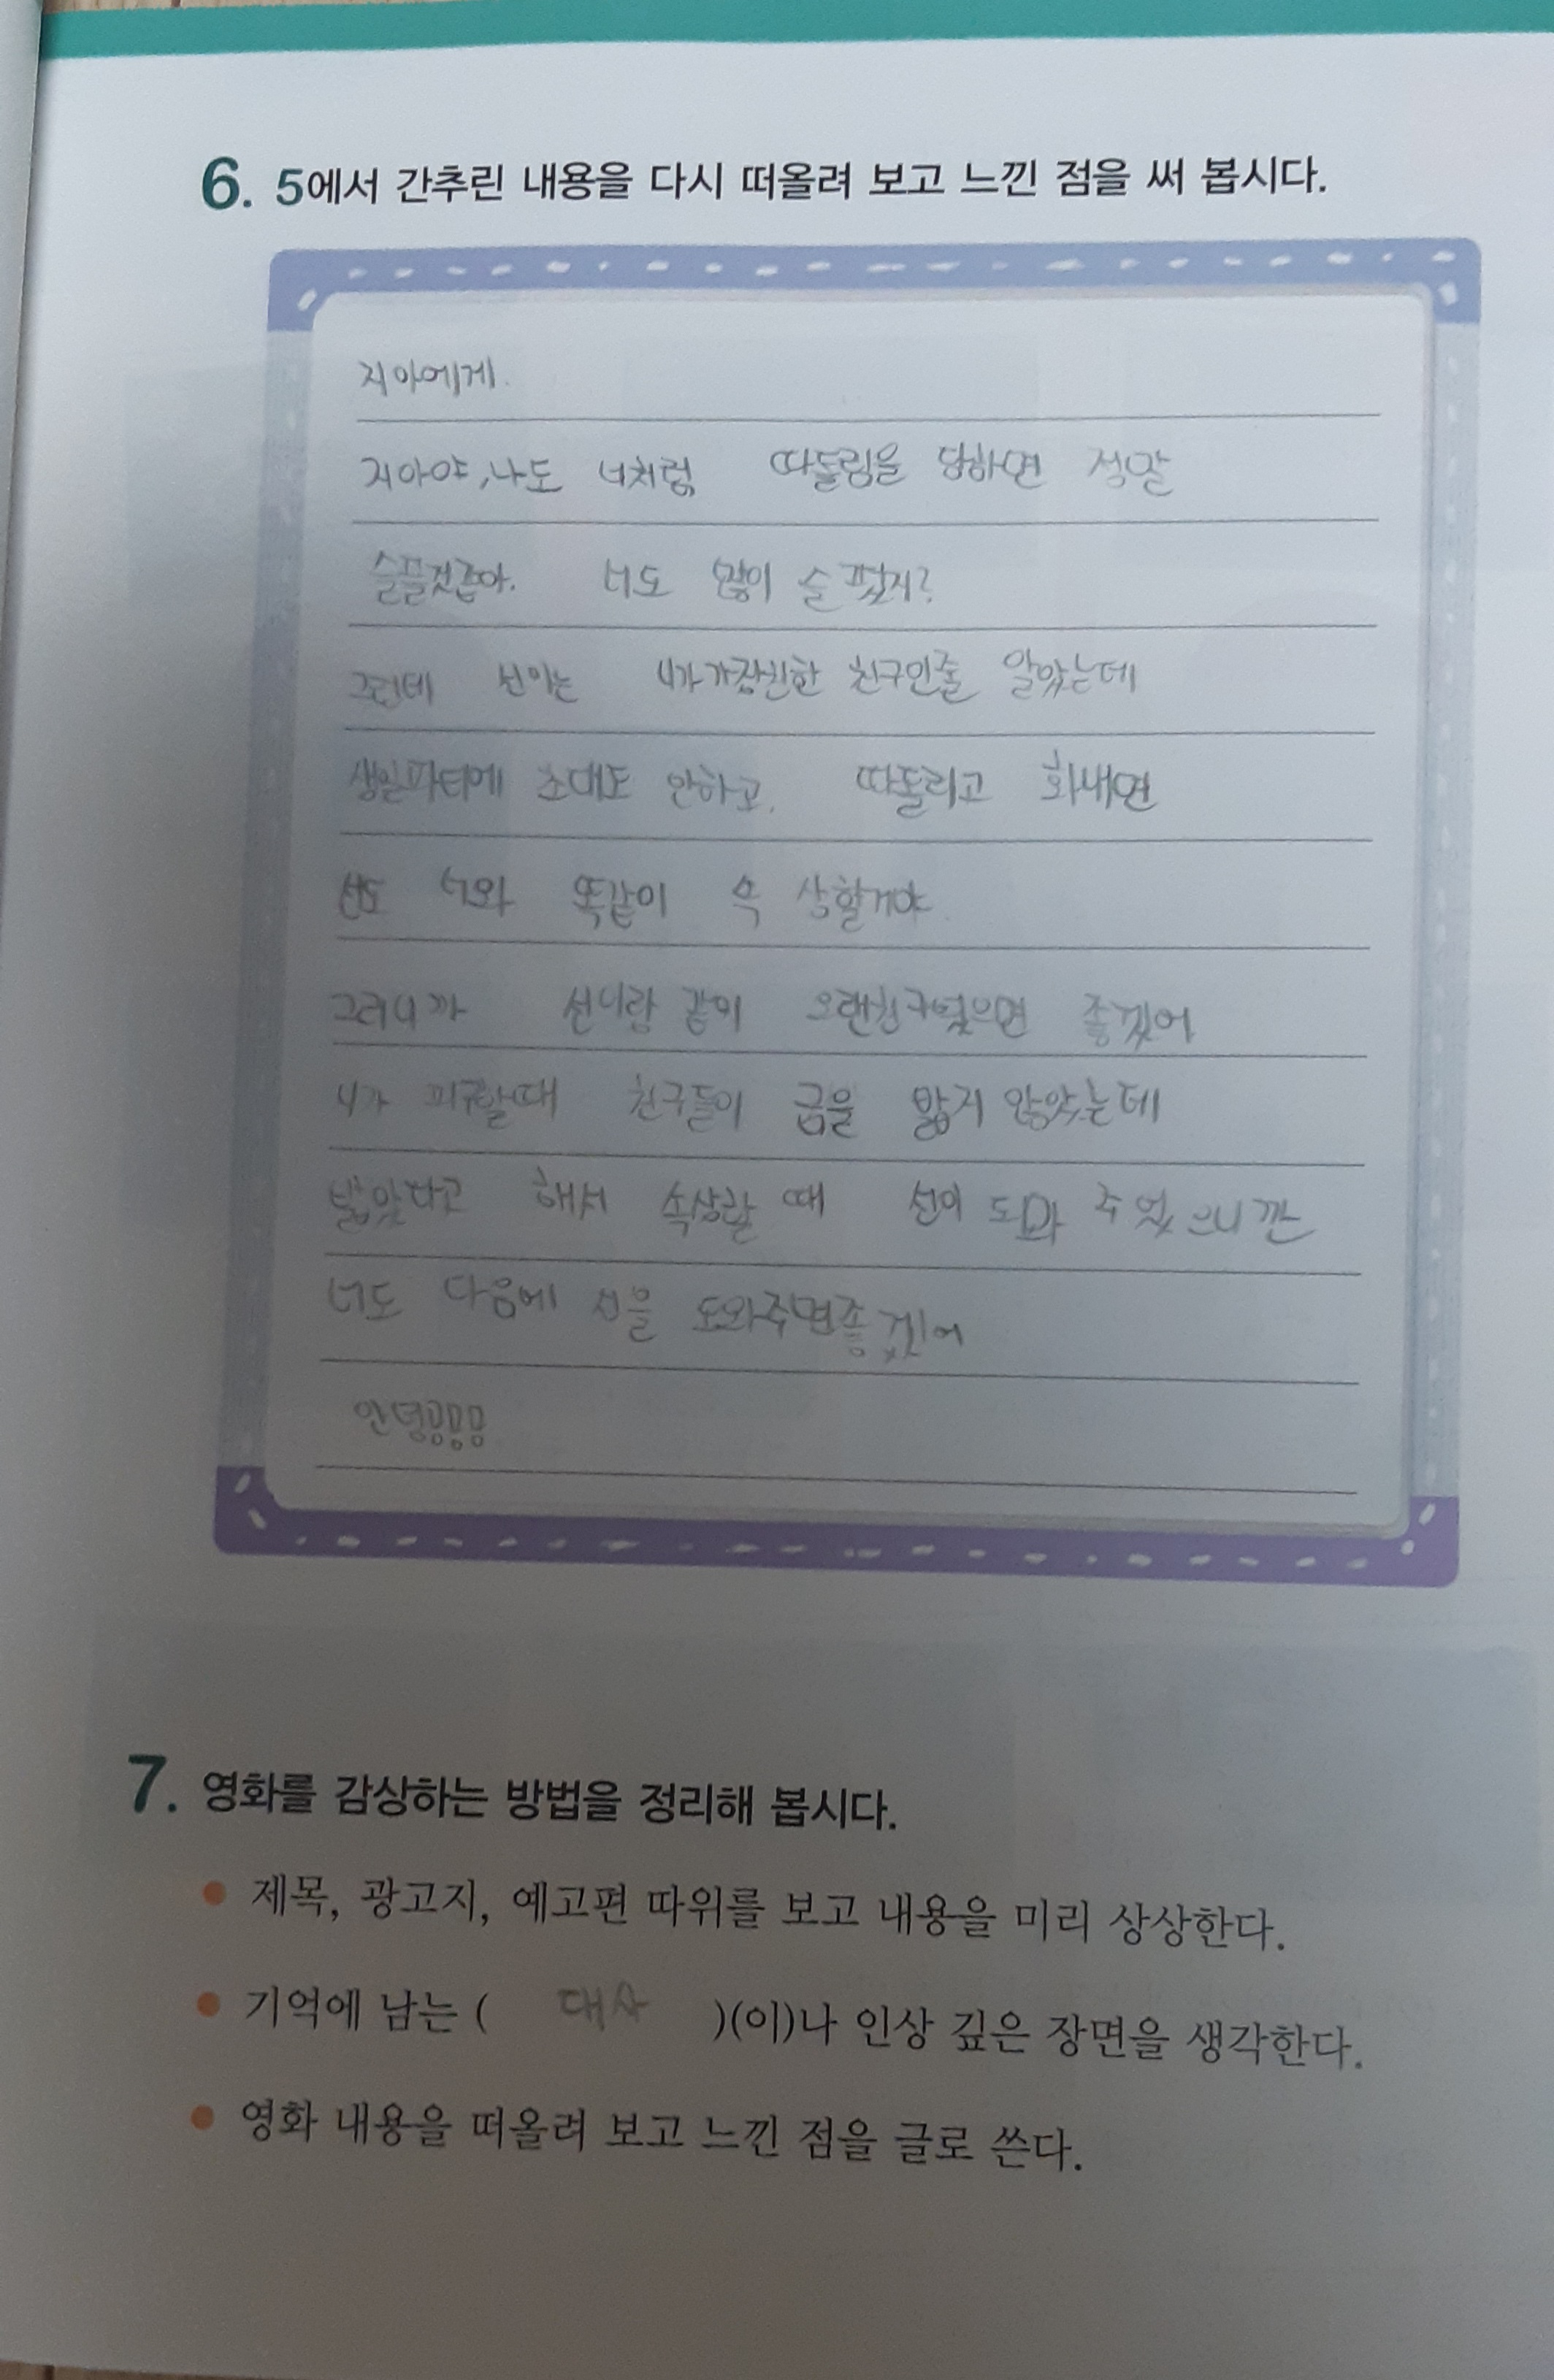 6. 5에서 간추린 내용을 다시 떠올려 보고 느낀 점을 써 봅시다.
지아에게.
지아야, 나도 너처럼 따돌림을 당하면 정말
슬플것같아. 너도 많이 슬펐지?
그런데 선이는 니가가장친한 친구인줄 알았는데
생일파티에 초대도 안하고, 따돌리고 화내면
선도 너와 똑같이 속 상할거야
그러니까 선이랑 같이 오랜친구였으면 좋겠어
니가 피구할때 친구들이 금을 밟지 않았는데
밟았다고 해서 속상할 때 선이 도와 주었으니깐
너도 다음에 선을 도와주면좋겠어
안녕!!!
7. 영화를 감상하는 방법을 정리해 봅시다.
• 제목, 광고지, 예고편 따위를 보고 내용을 미리 상상한다.
• 기억에 남는 ( 대사 )(이)나 인상 깊은 장면을 생각한다.
• 영화 내용을 떠올려 보고 느낀 점을 글로 쓴다.